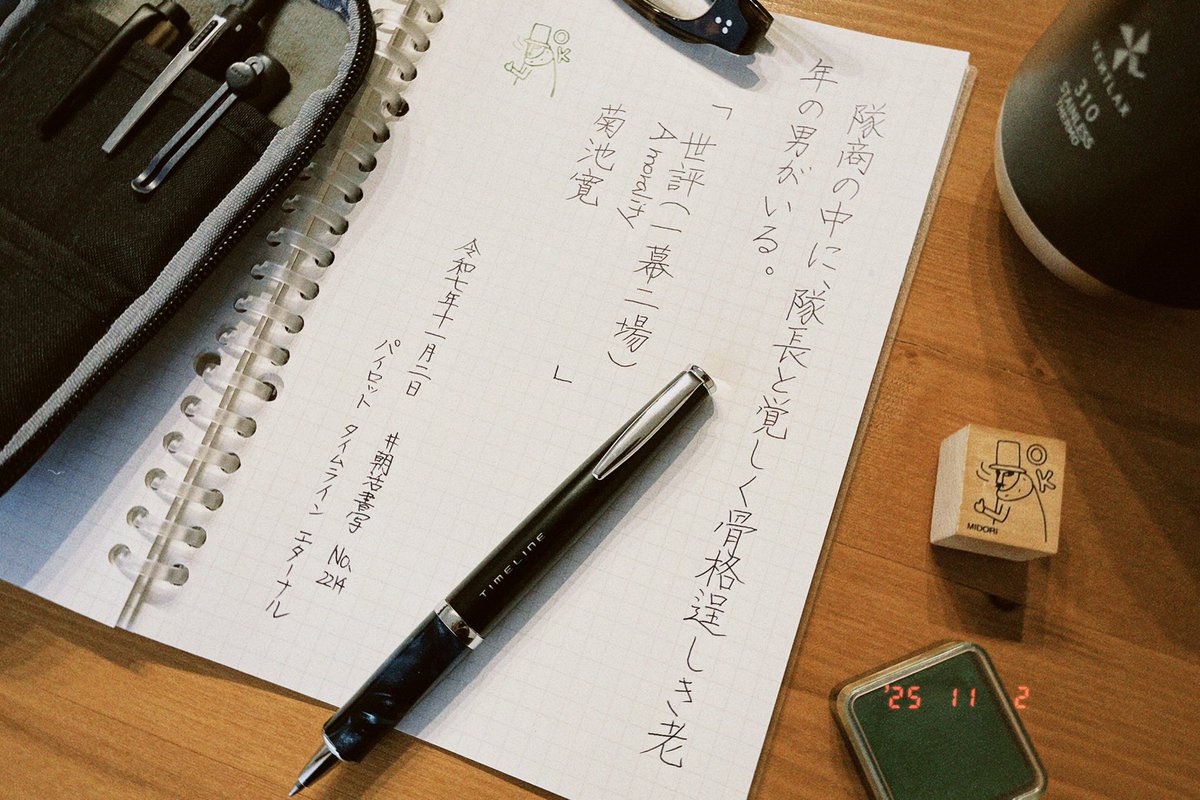 隊商の中に、隊長と覚しく骨格逞しき老
年の男がいる。
「世評(一幕二場)
A morality
」
菊池寛
令和七年十一月二日
#朝活書写 No.2214
パイロット タイムライン エターナル
OK
TIMELINE
VERTLAX
310
STAINLESS
THERMO
OK
MIDORI
'25 11 2